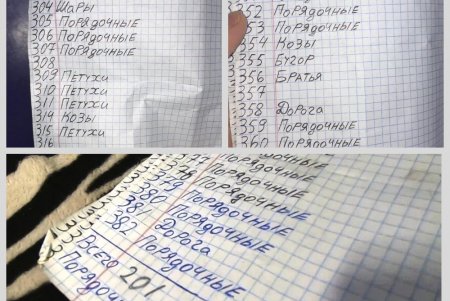 304 Шары
305 Порядочные
306 Порядочные
307 Порядочные
308
309 Петухи
310 Петухи
311 Петухи
314 Козы
315 Петухи
316
352 Порядочные
53 Порядочные
354 Козы
355 Бугор
356 Братья
357
358 Дорога
359 Порядочные
360 Порядочные
378 Порядочные
379 Порядочные
380 Порядочные
381 Дорога
382 Порядочные
Всего 201